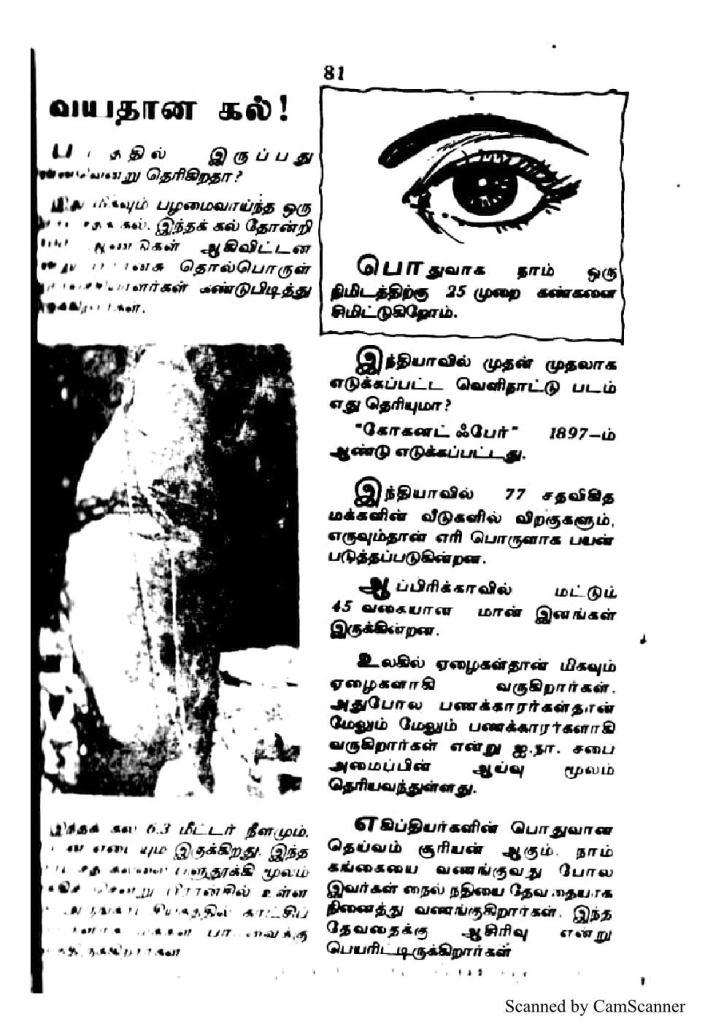 81
வயதான கல்!
இருப்பது
தெரிகிறதா?
பழமைவாய்ந்த ஒரு
கல். இந்தக் கல் தோன்றி
ஆகிவிட்டன
தொல்பொருள்
கண்டுபிடித்து
இந்தக் கல் 6.3 மீட்டர் நீளமும்,
இருக்கிறது. இந்த
பளுதூக்கி மூலம்
பிரான்சில் உள்ள
பொதுவாக நாம் ஒரு
நிமிடத்திற்கு 25 முறை கண்களை
சிமிட்டுகிறோம்.
இந்தியாவில் முதன் முதலாக
எடுக்கப்பட்ட வெளிநாட்டு படம்
எது தெரியுமா?
"கோகனட் ஃபேர்" 1897-ம்
ஆண்டு எடுக்கப்பட்டது.
இந்தியாவில் 77 சதவிகித
மக்களின் வீடுகளில் விறகுகளும்,
எருவும்தான் எரி பொருளாக பயன்
படுத்தப்படுகின்றன.
ஆப்பிரிக்காவில் மட்டும்
45 வகையான மான் இனங்கள்
இருக்கின்றன.
உலகில் ஏழைகள்தான் மிகவும்
ஏழைகளாகி வருகிறார்கள்.
அதுபோல பணக்காரர்கள்தான்
மேலும் மேலும் பணக்காரர்களாகி
வருகிறார்கள் என்று ஐ.நா. சபை
அமைப்பின் ஆய்வு மூலம்
தெரியவந்துள்ளது.
எகிப்தியர்களின் பொதுவான
தெய்வம் சூரியன் ஆகும். நாம்
கங்கையை வணங்குவது போல
இவர்கள் நைல் நதியை தேவதையாக
நினைத்து வணங்குகிறார்கள். இந்த
தேவதைக்கு ஆசிரிவு என்று
பெயரிட்டிருக்கிறார்கள்
Scanned by CamScanner